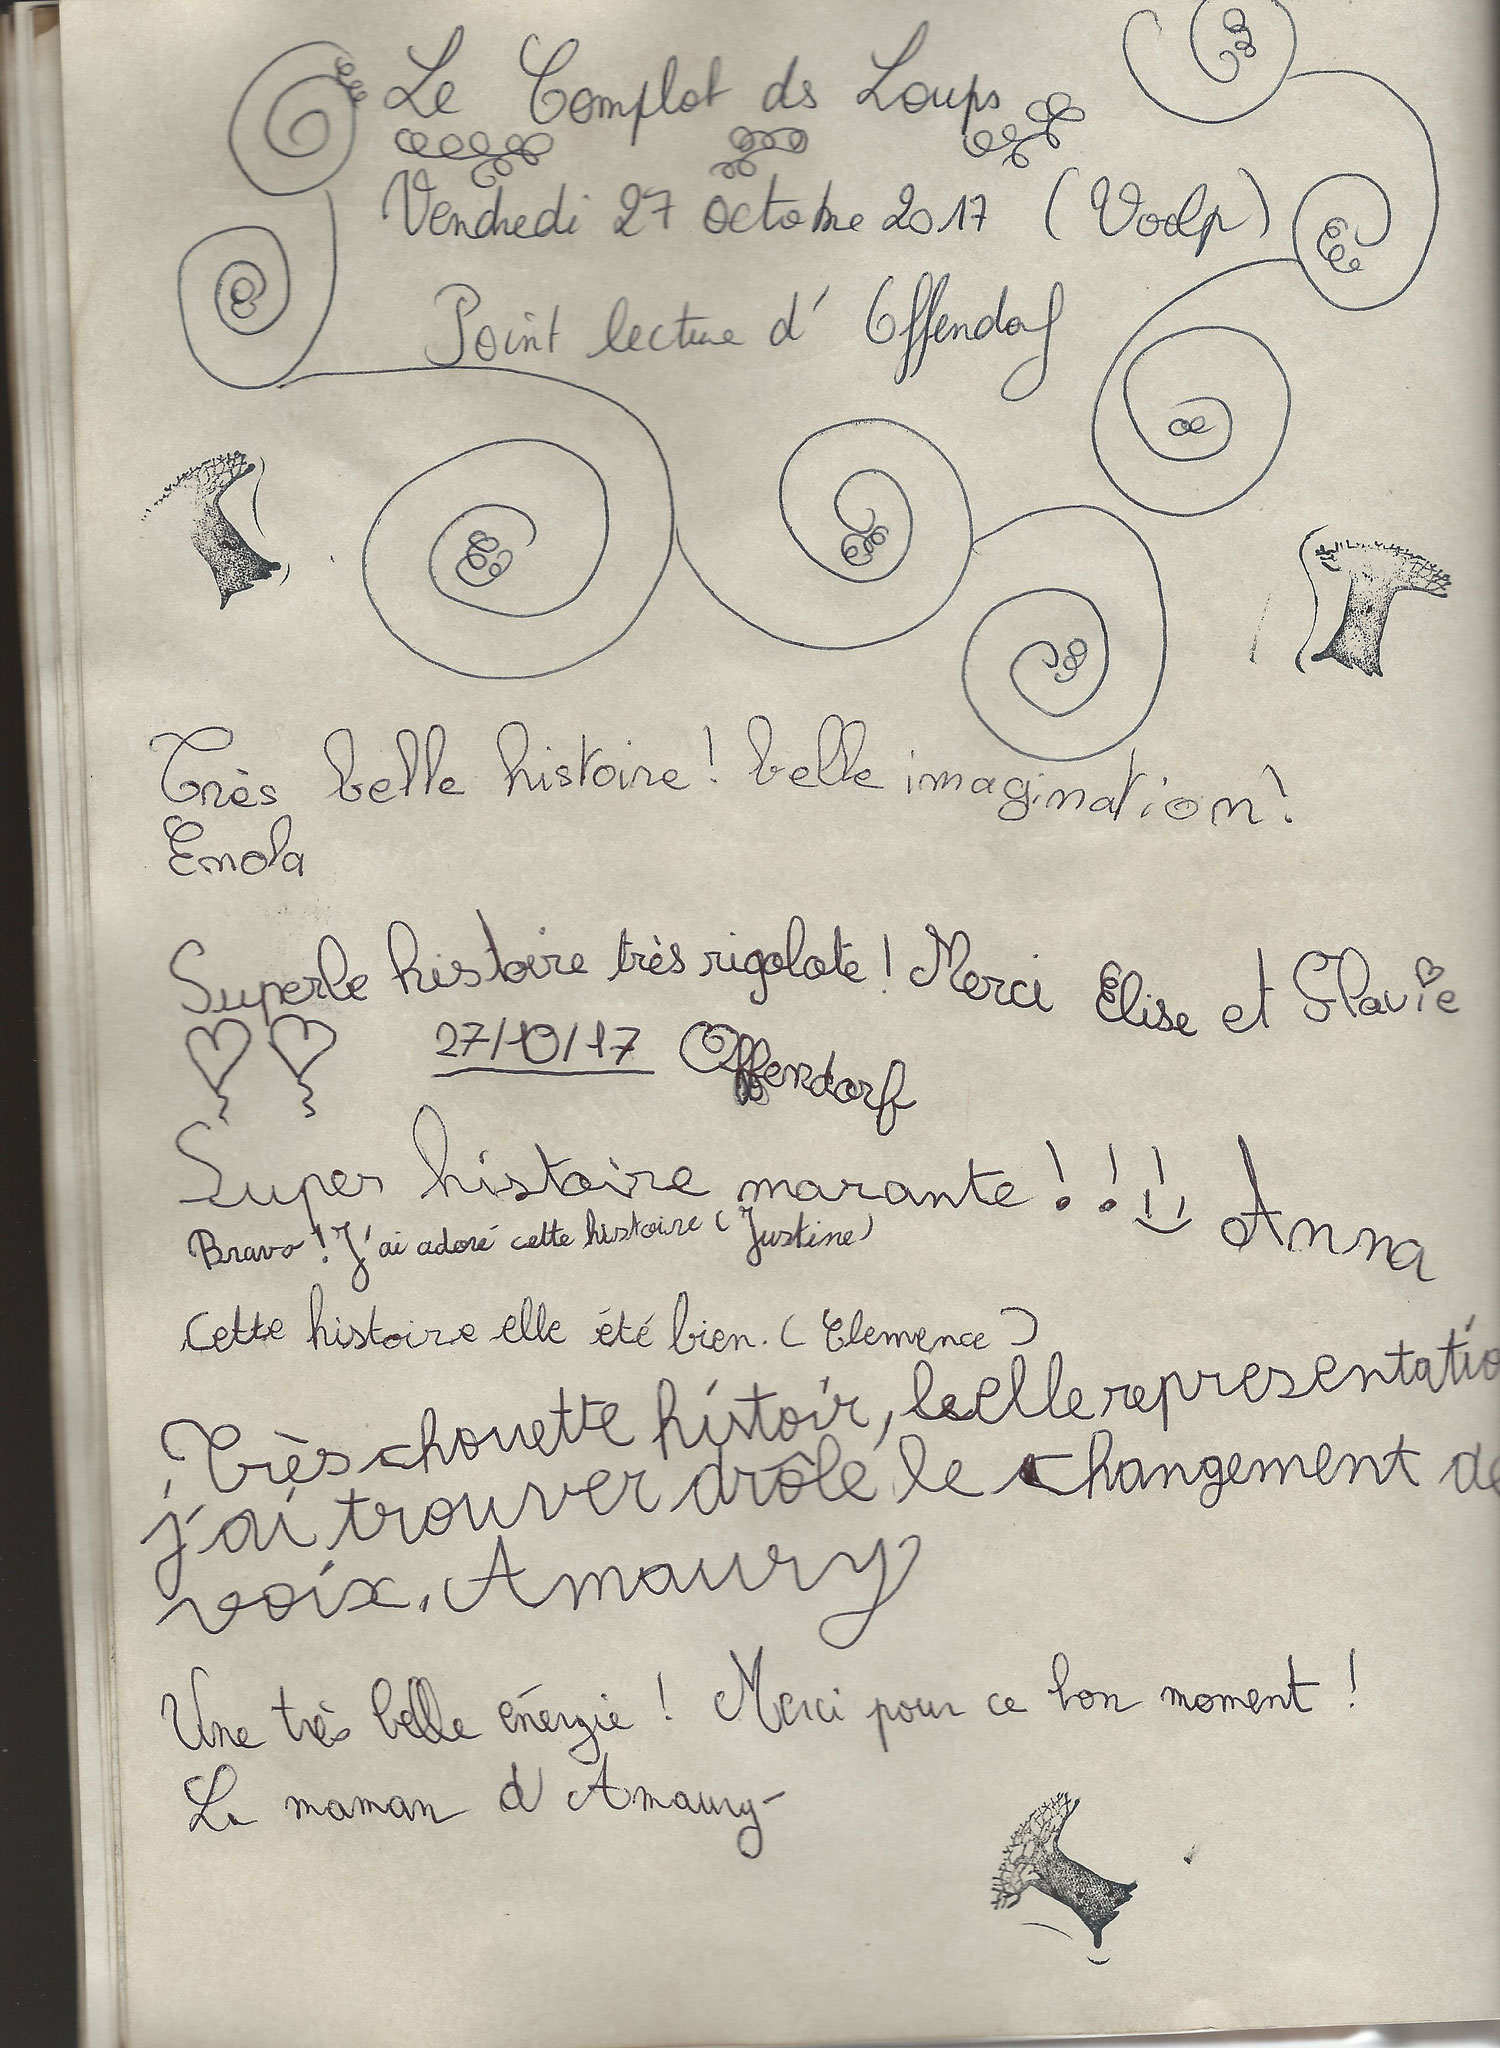 Le Complot ds Loups
Vendredi 27 octobre 2017 (Voolp)
Point lecture d'Offendorf
Très belle histoire! belle imagination!
Enola
Superbe histoire très rigolote! Merci Elise et Flavie
27/10/17 Offendorf
Super histoire marante!!!! Anna
Bravo! J'ai adoré cette histoire (Justine)
cette histoire elle été bien. (Clemence)
Très chouette histoir, belle representatio
j'ai trouver drôle le changement de
voix. Amaury
Une très belle énergie! Merci pour ce bon moment!
La maman d'Amaury